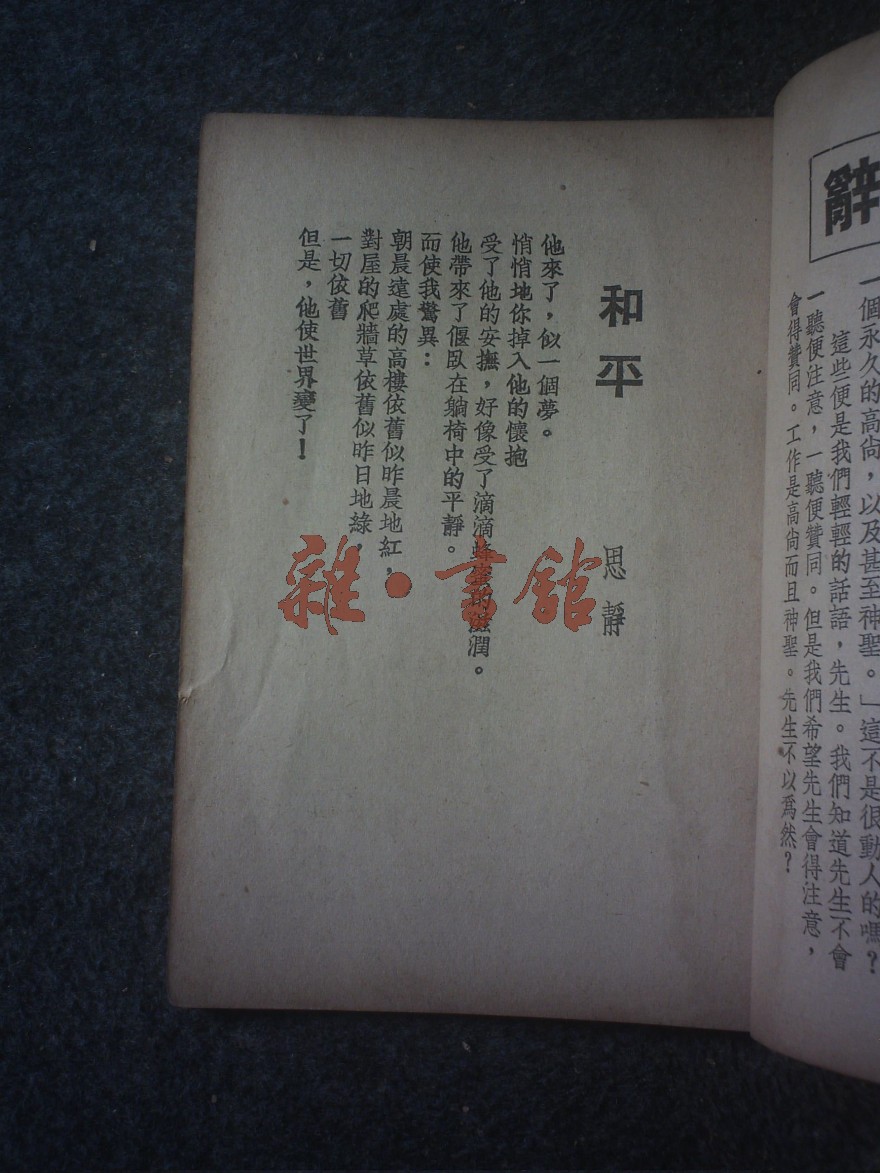 辭
一個永久的高尙，以及甚至神聖。」這不是很動人的嗎？
這些便是我們輕輕的話語，先生。我們知道先生不會
一聽便注意，一聽便贊同。但是我們希望先生會得注意，
會得贊同。工作是高尙而且神聖。先生不以爲然？
和平
思靜
他來了，似一個夢。
悄悄地你掉入他的懷抱
受了他的安撫，好像受了滴滴蜂蜜的滋潤。
他帶來了偃臥在躺椅中的平靜。
而使我驚異：
朝晨遠處的高樓依舊似昨晨地紅，
對屋的爬牆草依舊似昨日地綠，
一切依舊
但是，他使世界變了！
雜·書館